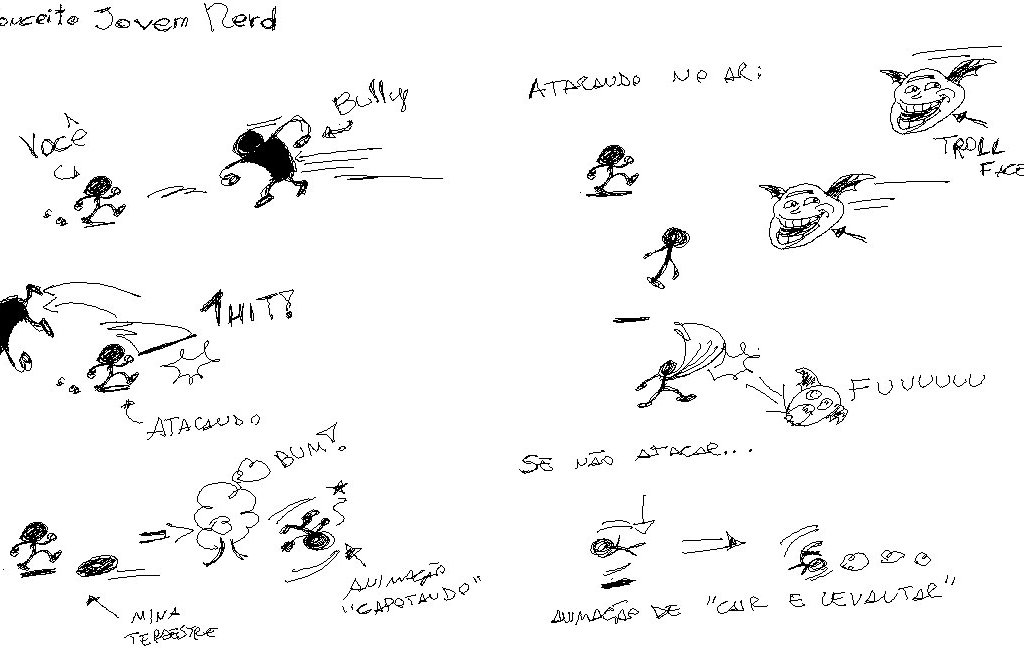 onceito Jovem Nerd
Você
Bully
1 HIT!
ATACANDO
BUM!
MINA
TERRESTRE
ANIMAÇÃO
"CAPOTANDO"
ATACANDO NO AR:
TROLL
FACE
FUUUUUU
SE NÃO ATACAR...
ANIMAÇÃO DE "CAIR E LEVANTAR"